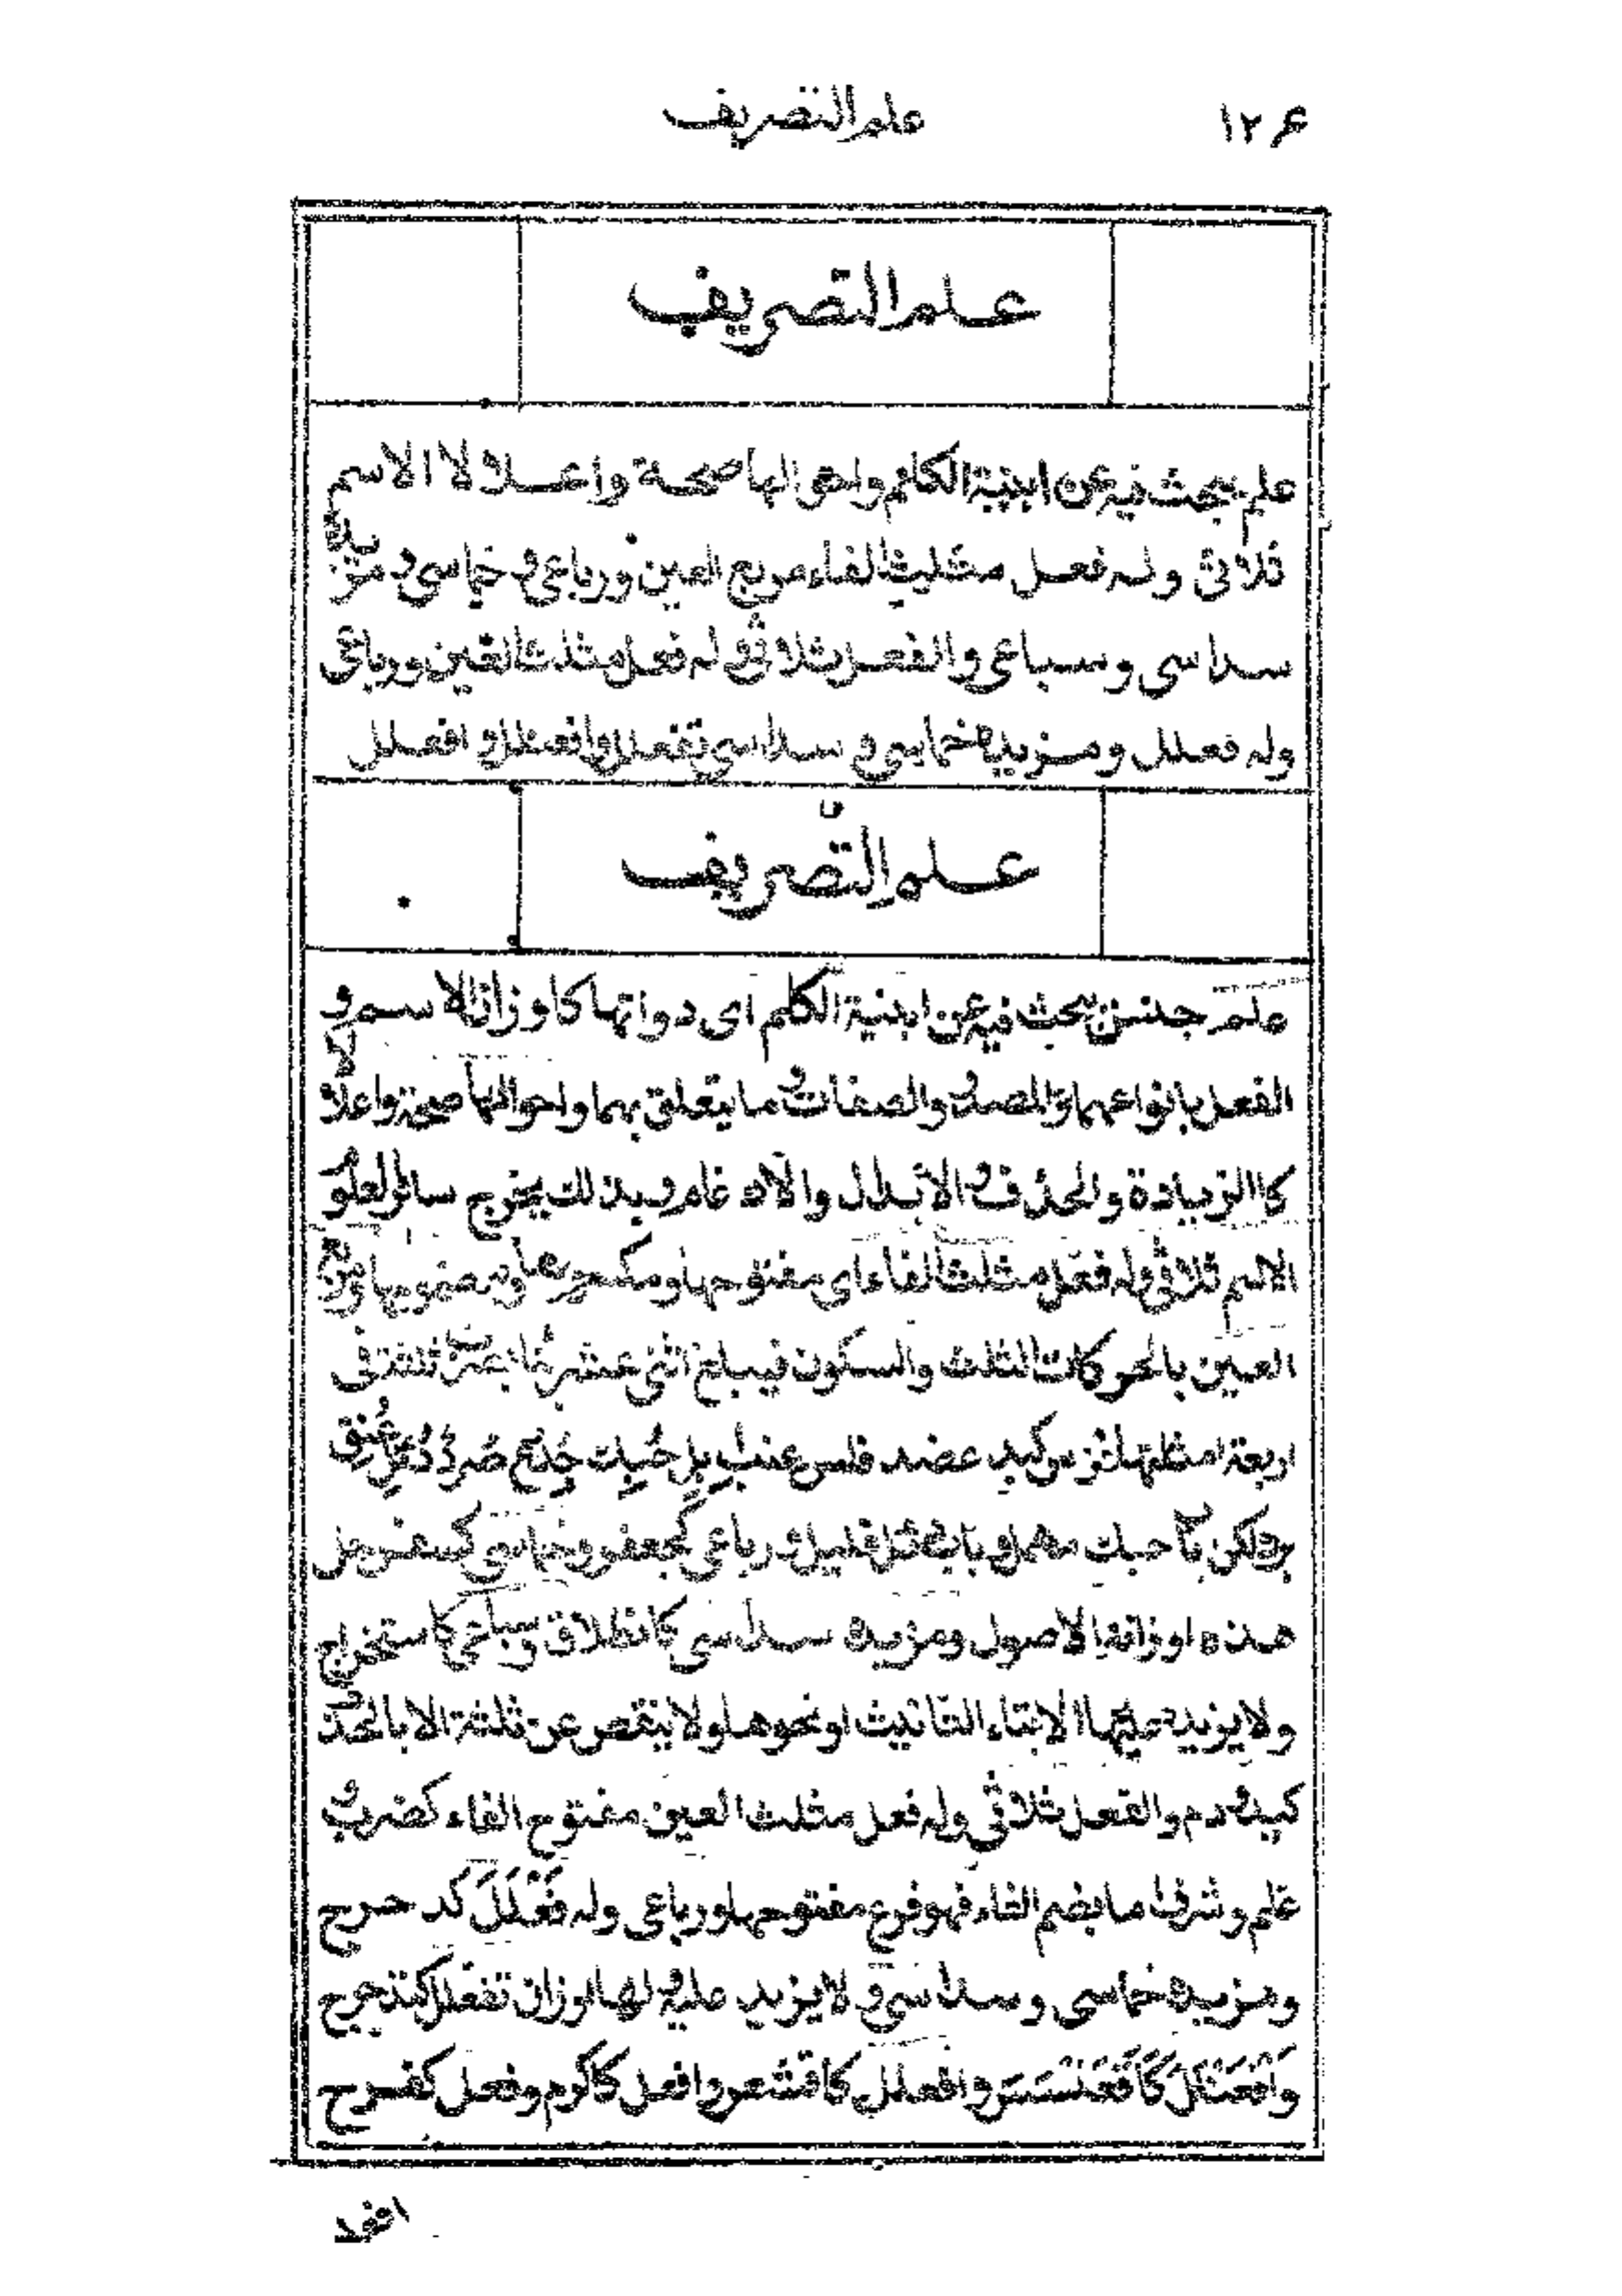 ١٢٤ علم التصريف
علم التصريف
علم يبحث فيه عن ابنية الكلم واحوالها صحة واعلالا الاسم
ثلاثى وله فعل مثلث الفاء مربع العين ورباعى وخماسى ومزيده
سداسى وسباعى والفعل ثلاثى وله فعل مثلث العين ورباعى
وله فعلل ومزيده خماسى وسداسى تفعلل وافعنلل وافعلل
علم التصريف
علم جنس يبحث فيه عن ابنية الكلم اى ذواتها كاوزان الاسم و
الفعل بانواعهما والمصدر والصفات وما يتعلق بهما واحوالها صحة واعلالا
كالزيادة والحذف والابدال والادغام وبذلك يخرج سائر العلوم
الاسم ثلاثى وله فعل مثلث الفاء اى مفتوحها ومكسورها ومضمومها ومربع
العين بالحركات الثلث والسكون فيبلغ اثنى عشر ثلثة فى
اربعة امثلتها فرس كبد عضد فلس عنب ابل حبك جذع صرد دئل عنق
برد لكن باب حبك مهمل وباب دئل قليل ورباعى كجعفر وخماسى كسفرجل
هذه اوزانه الاصول ومزيده سداسى كانطلاق وسباعى كاستخراج
ولا يزيد عليها الا بتاء التانيث او نحوها ولا ينقص عن ثلثة الا بالحذف
كيد ودم والفعل ثلاثى وله فعل مثلث العين مفتوح الفاء كضرب و
علم وشرف اما بضم الفاء فهو فرع مفتوحها ورباعى وله فَعْلَلَ كدحرج
ومزيده خماسى وسداسى ولا يزيد عليه ولها اوزان تفعلل كتدحرج
وَافْعَنْلَلَ كَاقْعَنْسَسَ وافعلل كاقشعر وافعل كاكرم وفعل كفرح